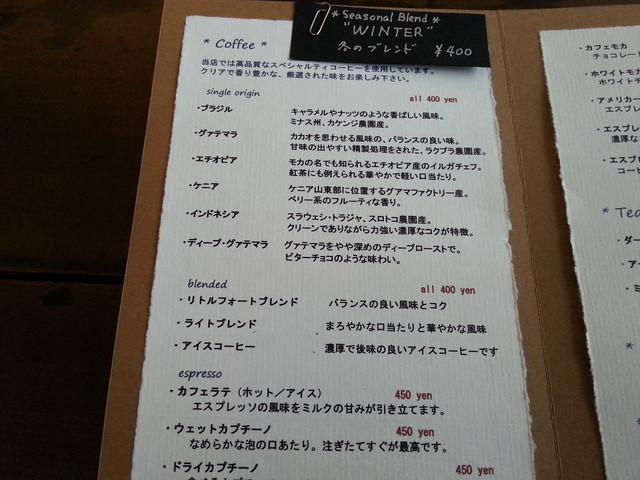 * Seasonal Blend *
"WINTER"
冬のブレンド ¥400
* Coffee *
当店では高品質なスペシャルティコーヒーを使用しています。
クリアで香り豊かな、厳選された味をお楽しみ下さい。
single origin all 400 yen
・ブラジル キャラメルやナッツのような香ばしい風味。
ミナス州、カケンジ農園産。
・グァテマラ カカオを思わせる風味の、バランスの良い味。
甘味の出やすい精製処理をされた、ラクプラ農園産。
・エチオピア モカの名でも知られるエチオピア産のイルガチェフ。
紅茶にも例えられる華やかで軽い口当たり。
・ケニア ケニア山東部に位置するグアマファクトリー産。
ベリー系のフルーティな香り。
・インドネシア スラウェシ・トラジャ、スロトコ農園産。
クリーンでありながら力強い濃厚なコクが特徴。
・ディープ・グァテマラ グァテマラをやや深めのディープローストで。
ビターチョコのような味わい。
blended all 400 yen
・リトルフォートブレンド バランスの良い風味とコク
・ライトブレンド まろやかな口当たりと華やかな風味
・アイスコーヒー 濃厚で後味の良いアイスコーヒーです
espresso
・カフェラテ（ホット／アイス） 450 yen
エスプレッソの風味をミルクの甘みが引き立てます。
・ウェットカプチーノ 450 yen
なめらかな泡の口あたり。注ぎたてすぐが最高です。
・ドライカプチーノ 450 yen
・カフェモカ
チョコレー
・ホワイトモカ
ホワイトチ
・アメリカー
エスプレ
・エスプレ
濃厚な
・エスプ
コーヒ
* Tea
・ダー
・アー
・ミ
*